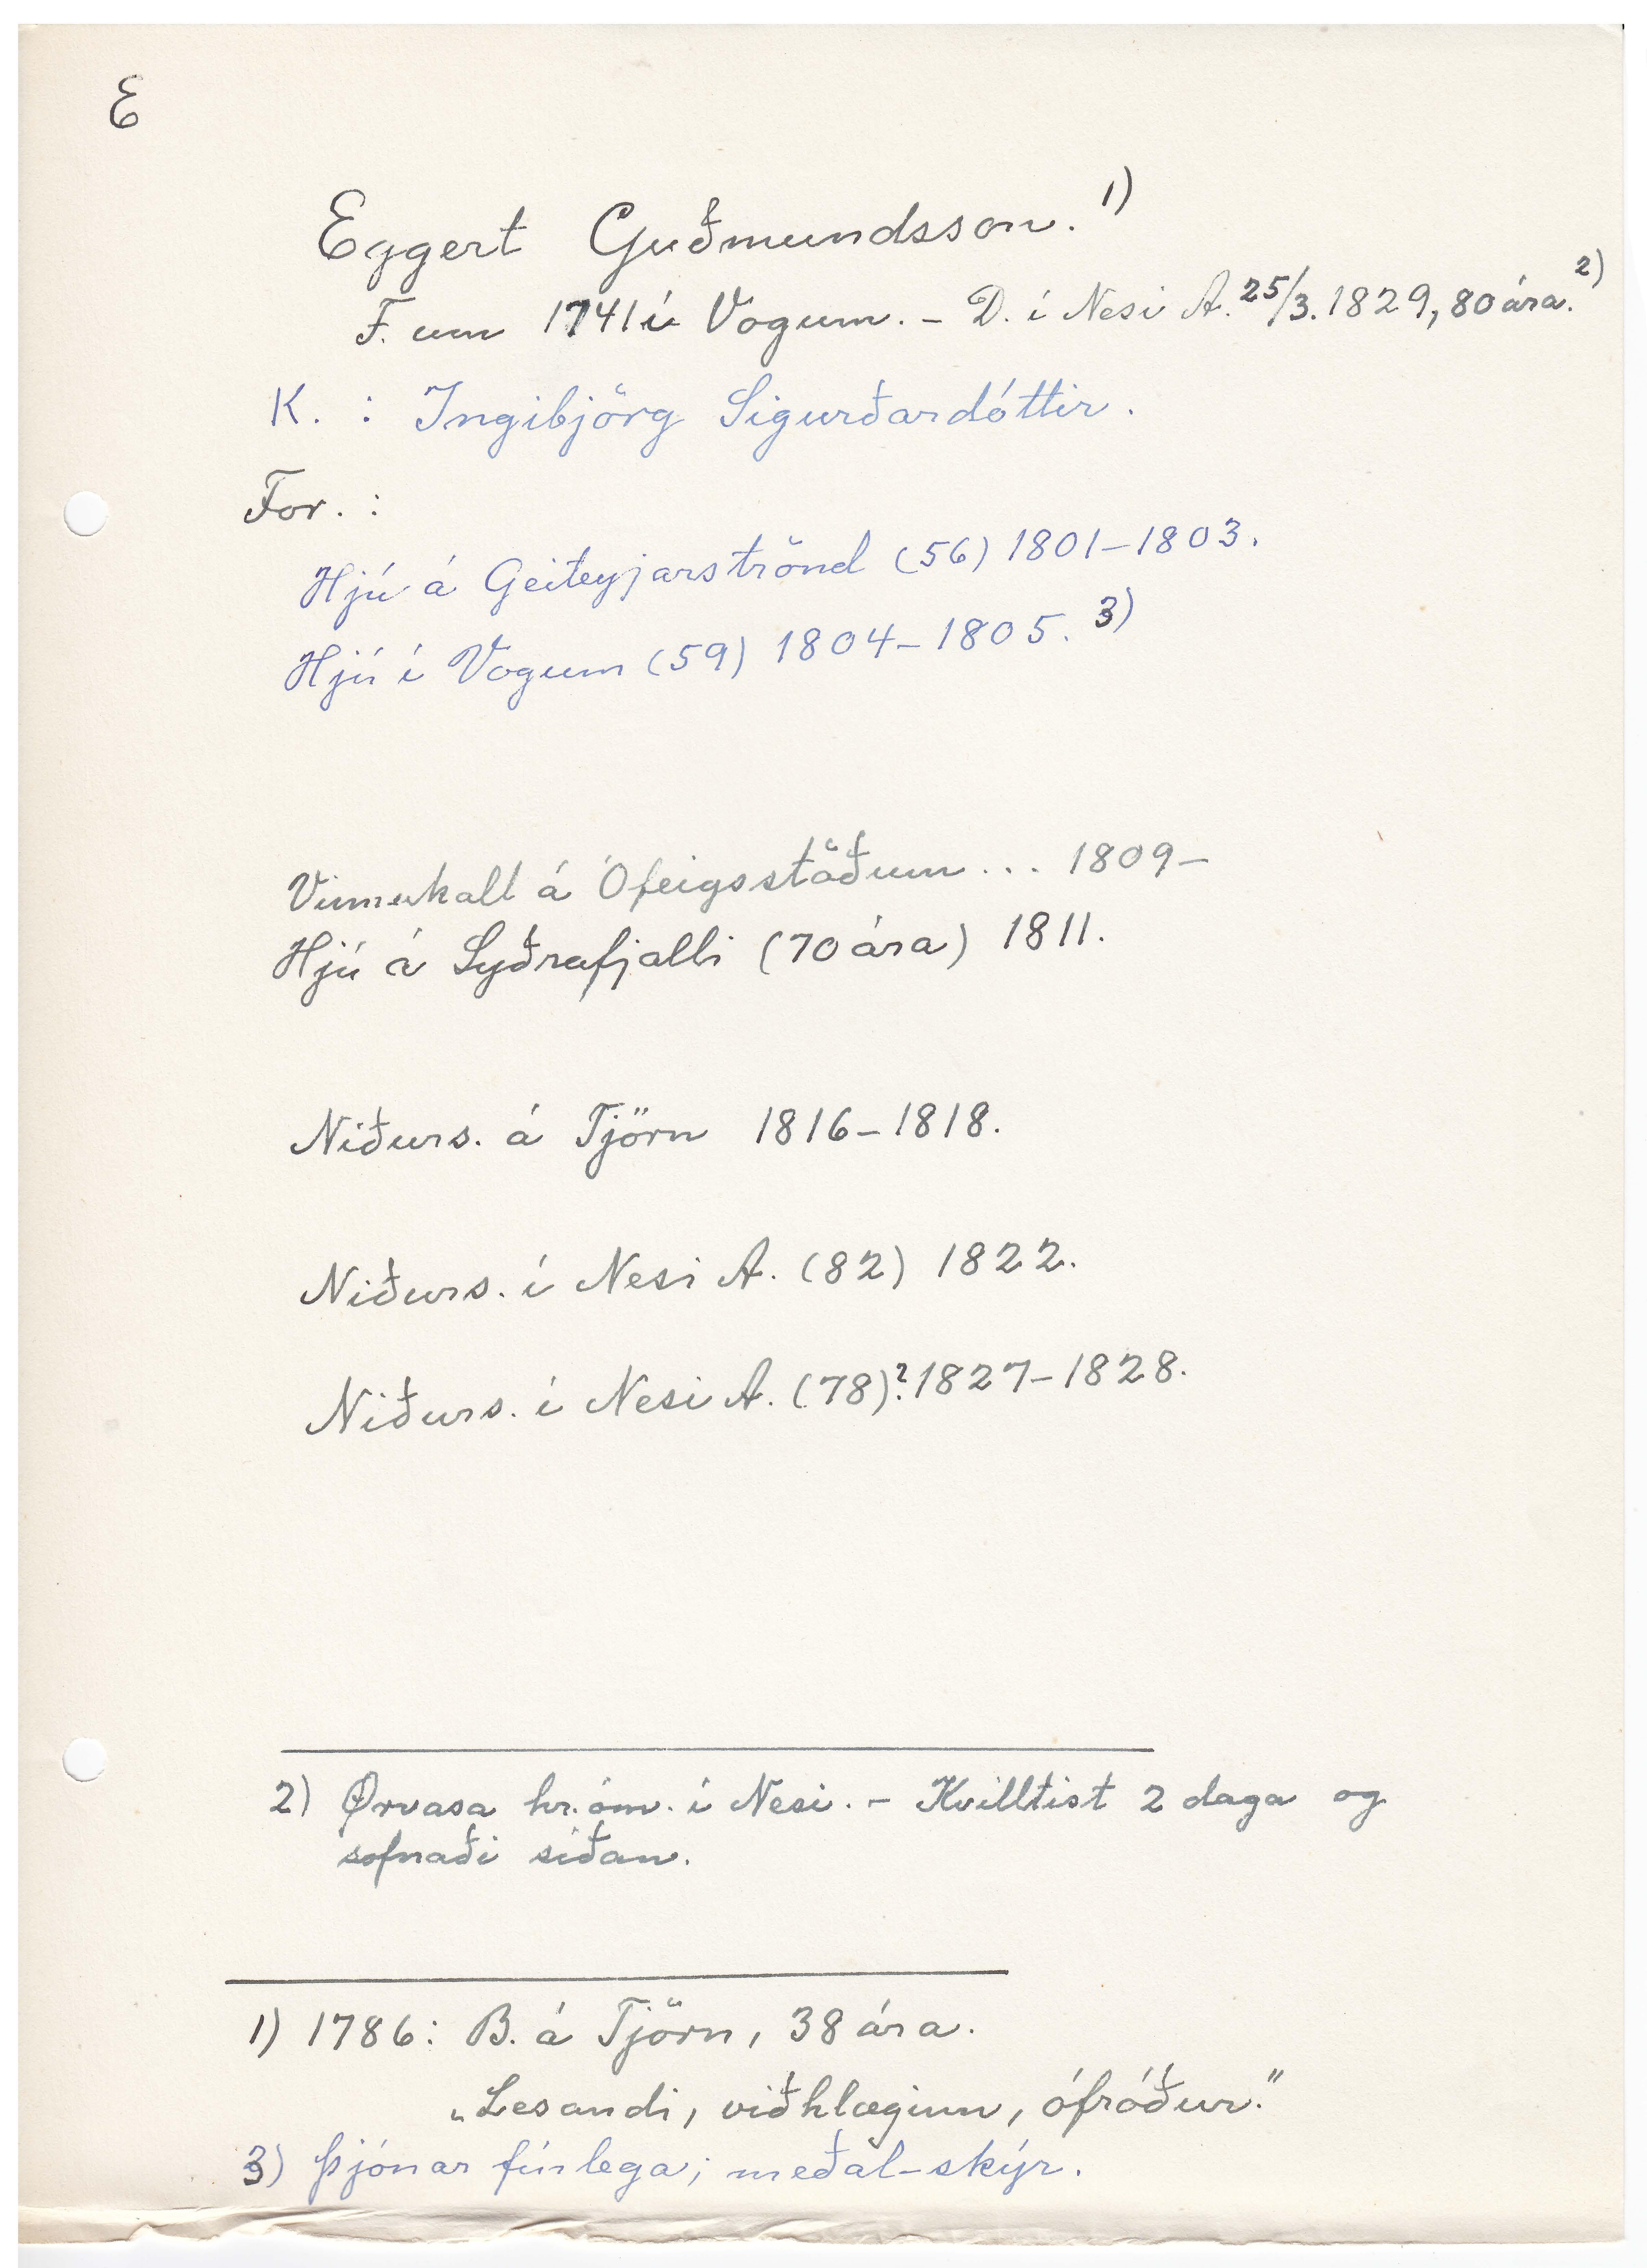 E
Eggert Guðmundsson. 1)
F. um 1741 í Vogum. - D. í Nesi A. 25/3. 1829, 80 ára. 2)
K. : Ingibjörg Sigurðardóttir.
For. :
Hjú á Geiteyjarströnd (56) 1801-1803.
Hjú í Vogum (59) 1804-1805. 3)
Vinnukall á Ófeigsstöðum ... 1809-
Hjú á Syðrafjalli (70 ára) 1811.
Niðurs. á Tjörn 1816-1818.
Niðurs. í Nesi A. (82) 1822.
Niðurs. í Nesi A. (78)? 1827-1828.
2) Ørvasa hr.óm. í Nesi. - Kvilltist 2 daga og
sofnaði síðan.
1) 1786: B. á Tjörn, 38 ára.
„Lesandi, viðhlæginn, ófróður."
3) Þjónar fínlega; meðal-skýr.